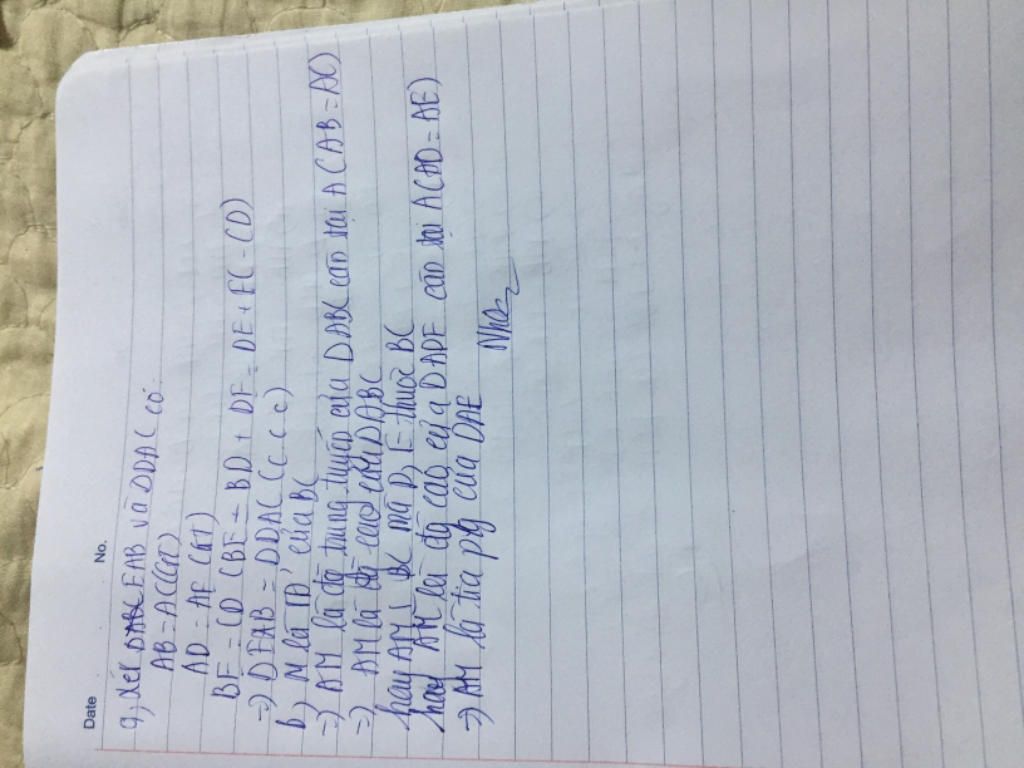 Date No.
a, Xét EAB và DDAC có:
AB = AC (GT)
AD = AE (GT)
BE = CD (BE = BD + DE = DE + EC = CD)
=> DEAB = DDAC (c.c.c)
b) M là TĐ của BC
=> AM là đg trung tuyến của DABC cân tại A (AB = AC)
=> AM là đg cao của DABC
hay AM ⊥ BC mà D, E thuộc BC
AM là đg cao của DADE cân tại A (AD = AE)
=> AM là tia pg của DAE